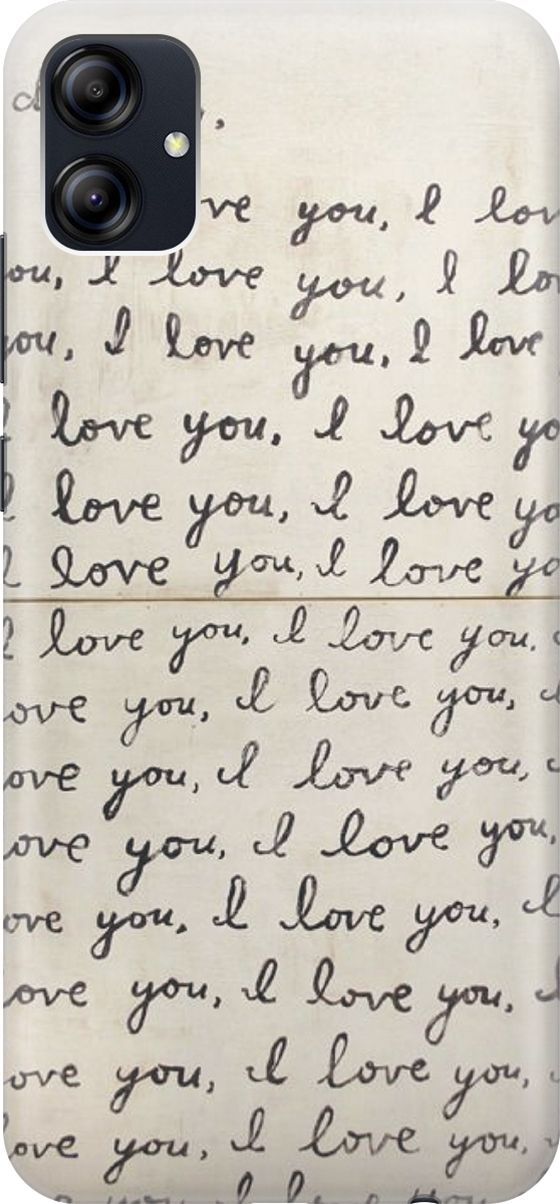 you, I
you, I love you, I
you, I love you, I love
I love you, I love
I love you, I love
I love you, I love
I love you, I love you,
love you, I love you,
love you, I love you,
love you, I love you,
love you, I love you,
love you, I love you,
love you, I love you,
love you, I love you,